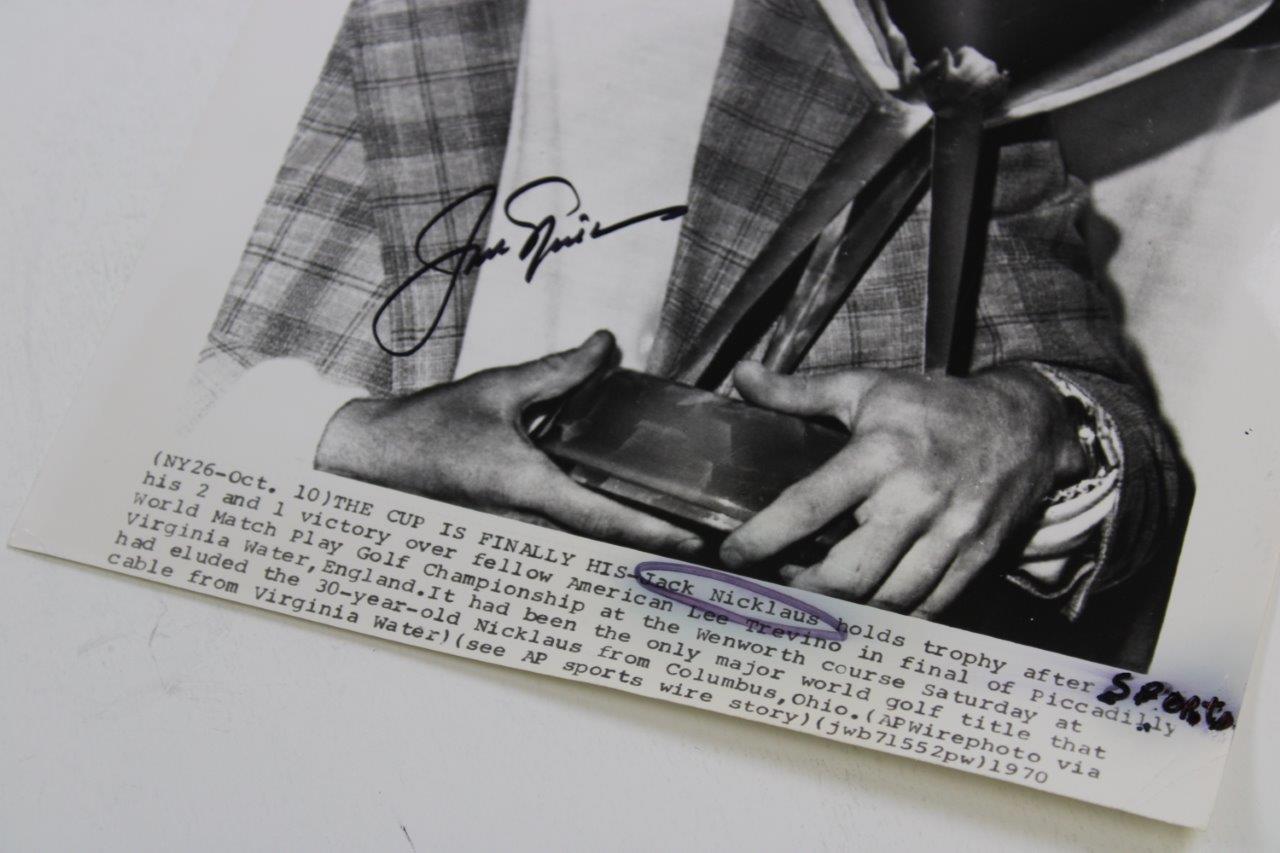 (NY26-Oct. 10)THE CUP IS FINALLY HIS-Jack Nicklaus holds trophy after
his 2 and 1 victory over fellow American Lee Trevino in final of Piccadilly
World Match Play Golf Championship at the Wenworth course Saturday at
Virginia Water,England.It had been the only major world golf title that
had eluded the 30-year-old Nicklaus from Columbus,Ohio.(APWirephoto via
cable from Virginia Water)(see AP sports wire story)(jwb71552pw)1970
SPORTS